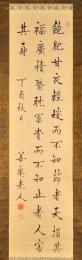 飽肥甘衣輕煖而不知節者天損其
福廣積聚驕富貴而不知止者人害
其身
丁酉
老人